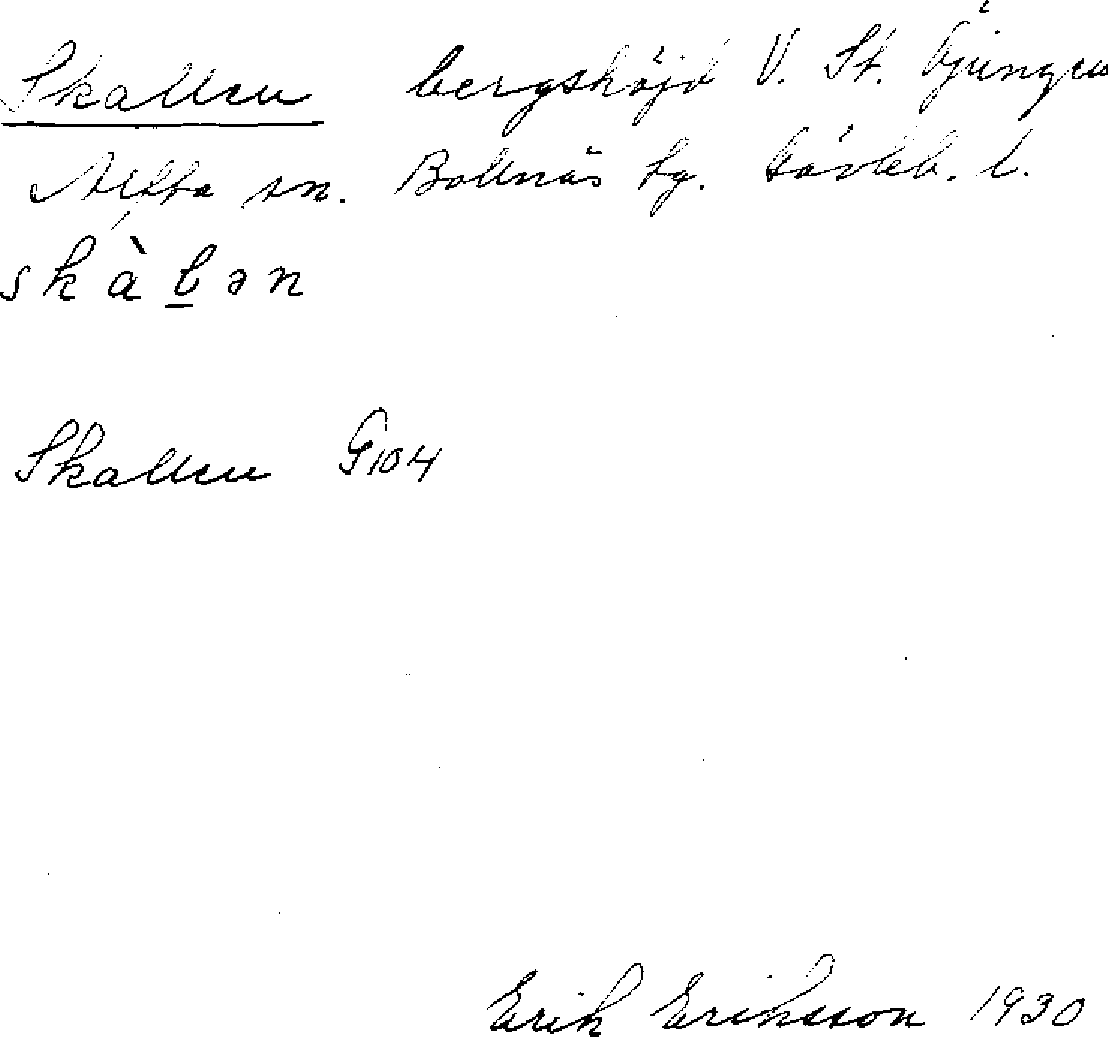 Skallen bergshöjd V. St. Öjungen
Alfta sn. Bollnäs tg. Gävleb. l.
skàlən
Skallen G104
Erik Eriksson 1930